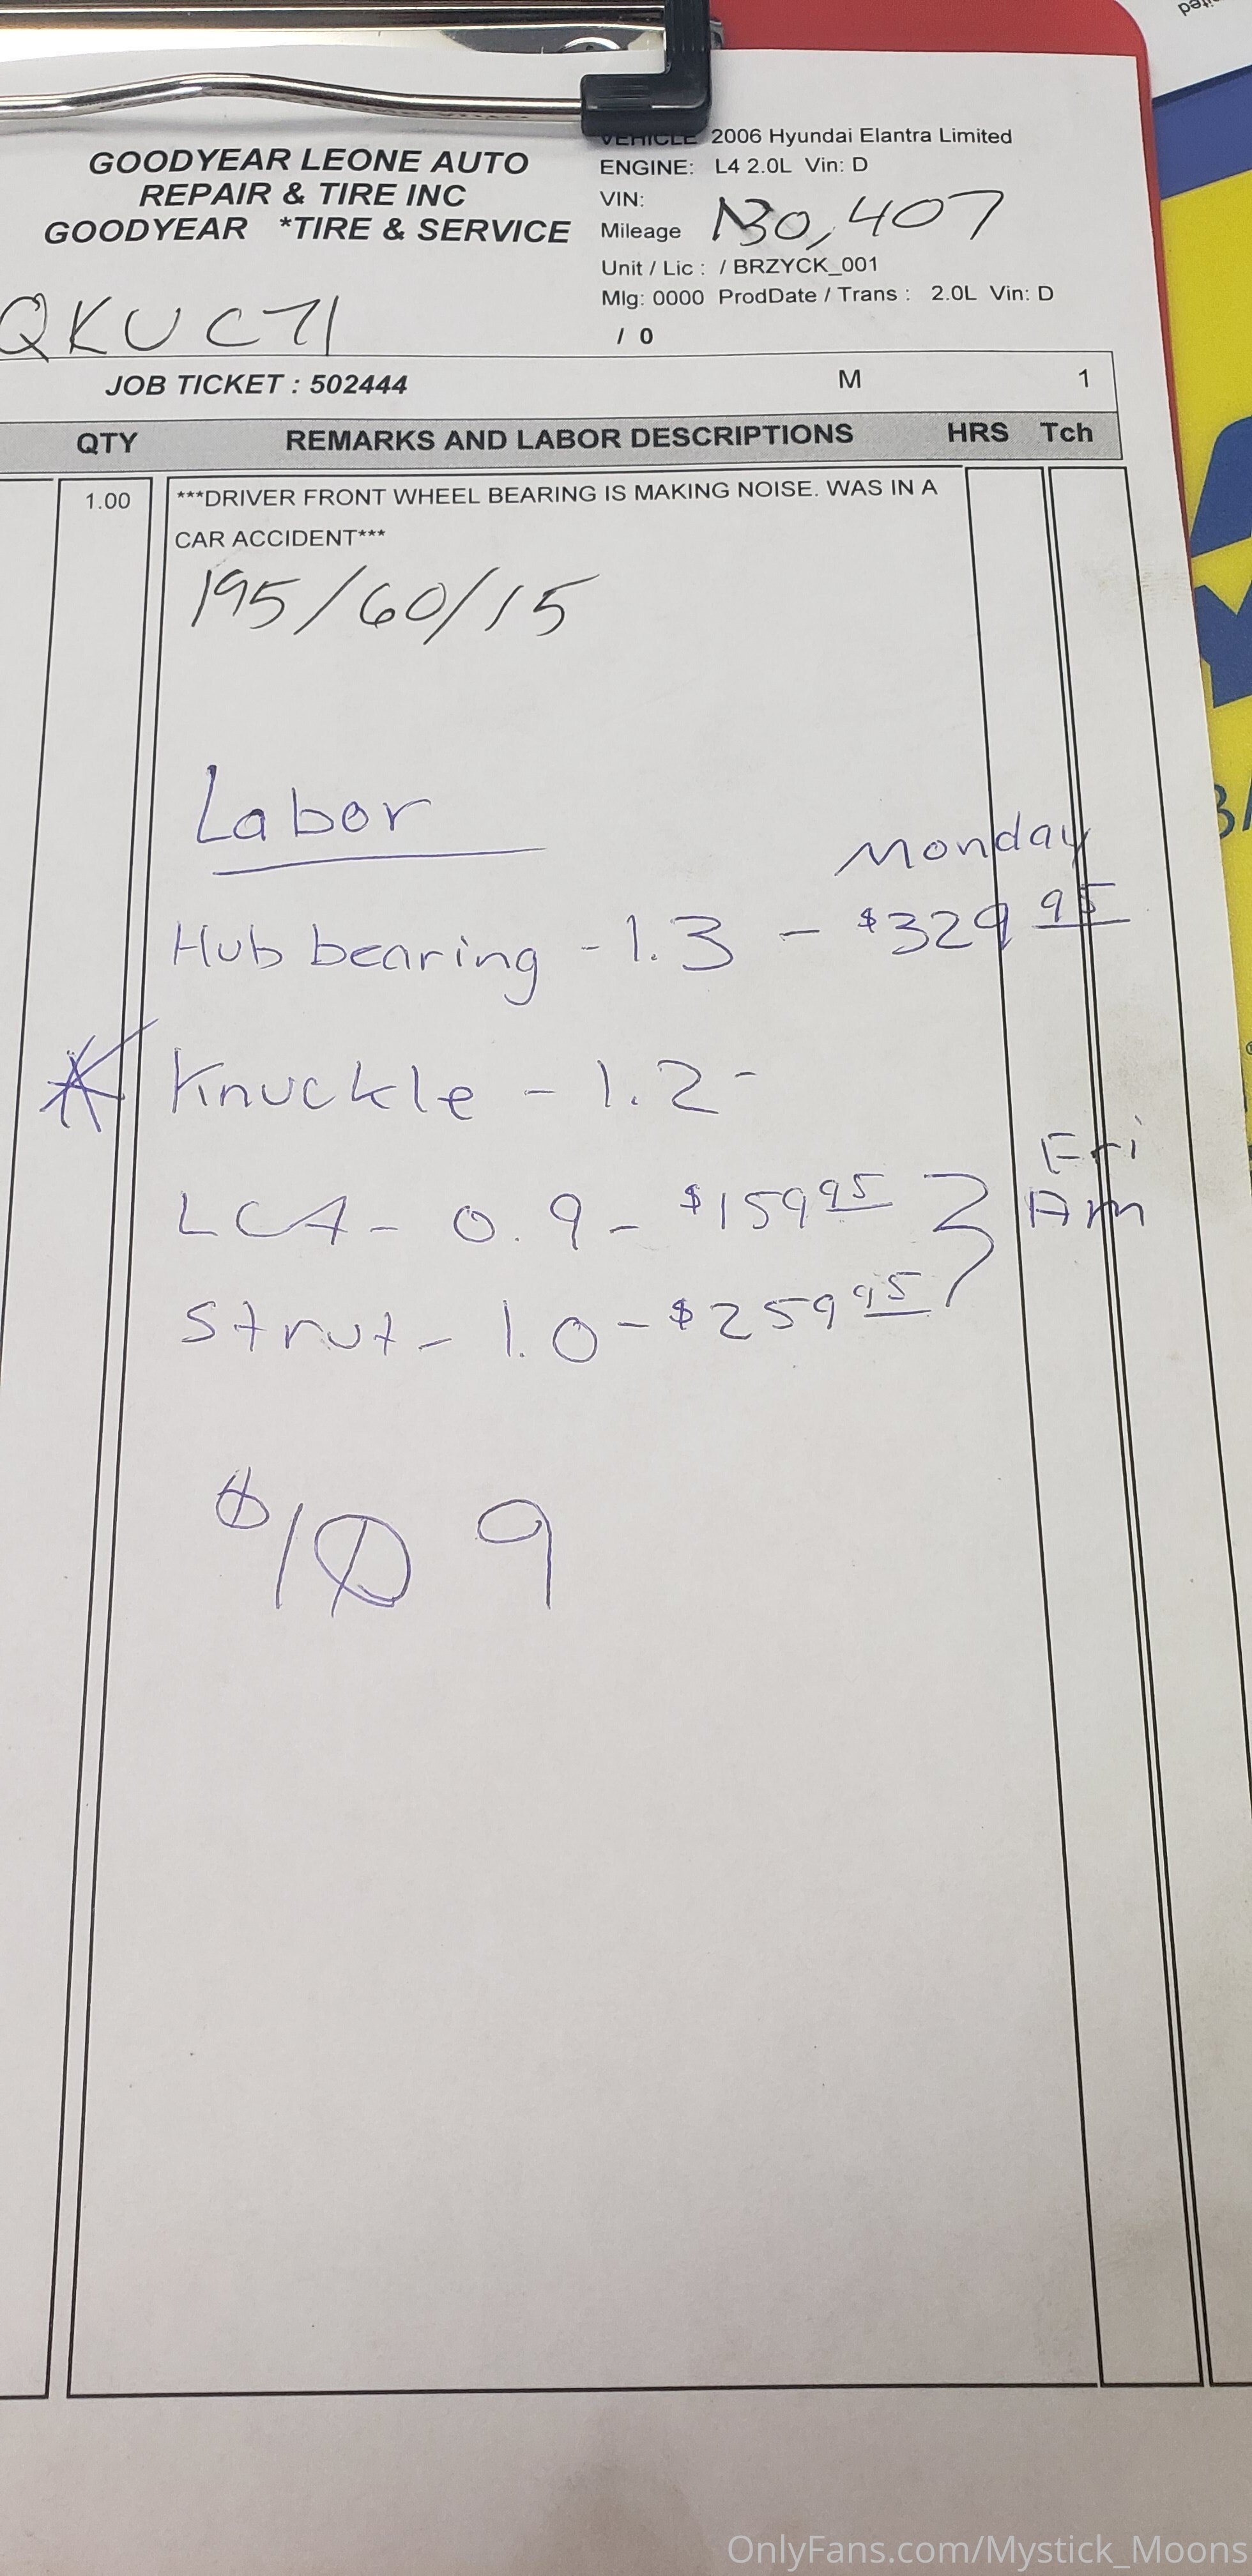 VEHICLE 2006 Hyundai Elantra Limited
GOODYEAR LEONE AUTO
REPAIR & TIRE INC
GOODYEAR *TIRE & SERVICE
ENGINE: L4 2.0L Vin: D
VIN:
Mileage 130,407
Unit / Lic : / BRZYCK_001
Mlg: 0000 ProdDate / Trans : 2.0L Vin: D
/ 0
QKUC71
JOB TICKET : 502444 M 1
QTY REMARKS AND LABOR DESCRIPTIONS HRS Tch
1.00 ***DRIVER FRONT WHEEL BEARING IS MAKING NOISE. WAS IN A
CAR ACCIDENT***
195/60/15
Labor
Monday
Hub bearing - 1.3 - $329 95
Knuckle - 1.2 -
Fri
LCA - 0.9 - $159 95 } Am
Strut - 1.0 - $259 95
$109
OnlyFans.com/Mystick_Moons